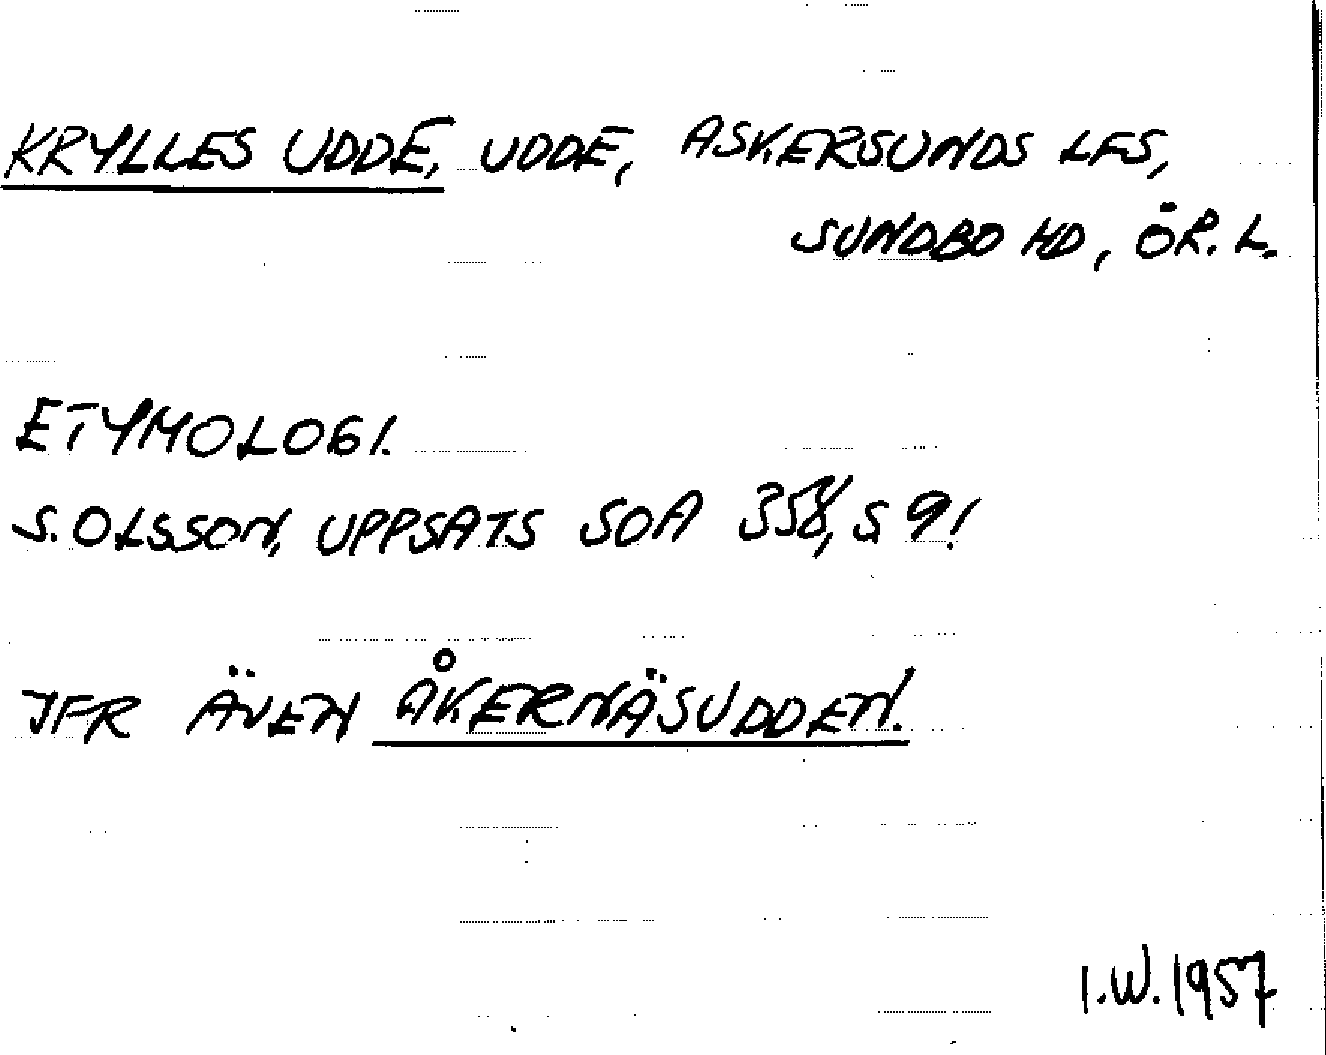 KRYLLES UDDE, UDDE, ASKERSUNDS LFS,
SUNDBO HD, ÖR. L.
ETYMOLOGI.
S. OLSSON, UPPSATS SOA 358, S 9!
JFR ÄVEN ÅKERNÄSUDDEN.
I.W. 1957